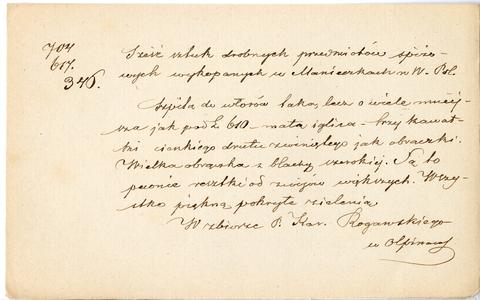 704
617.
346.
Sześć sztuk drobnych przedmiotów spiżo-
wych wykopanych w Manieczkach w W. Pol.
Szpila do włosów taka, lecz o wiele mniej-
sza jak pod L 610 – mała iglica – trzy kawał-
ki cienkiego drutu zwiniętego jak obrączki.
Wielka obrączka z blachy szerokiej. Są to
pewnie resztki od zwojów większych. Wszy-
stko piękną pokryte zielenią
W zbiorze P. Kar. Rogawskiego
w Olpinach